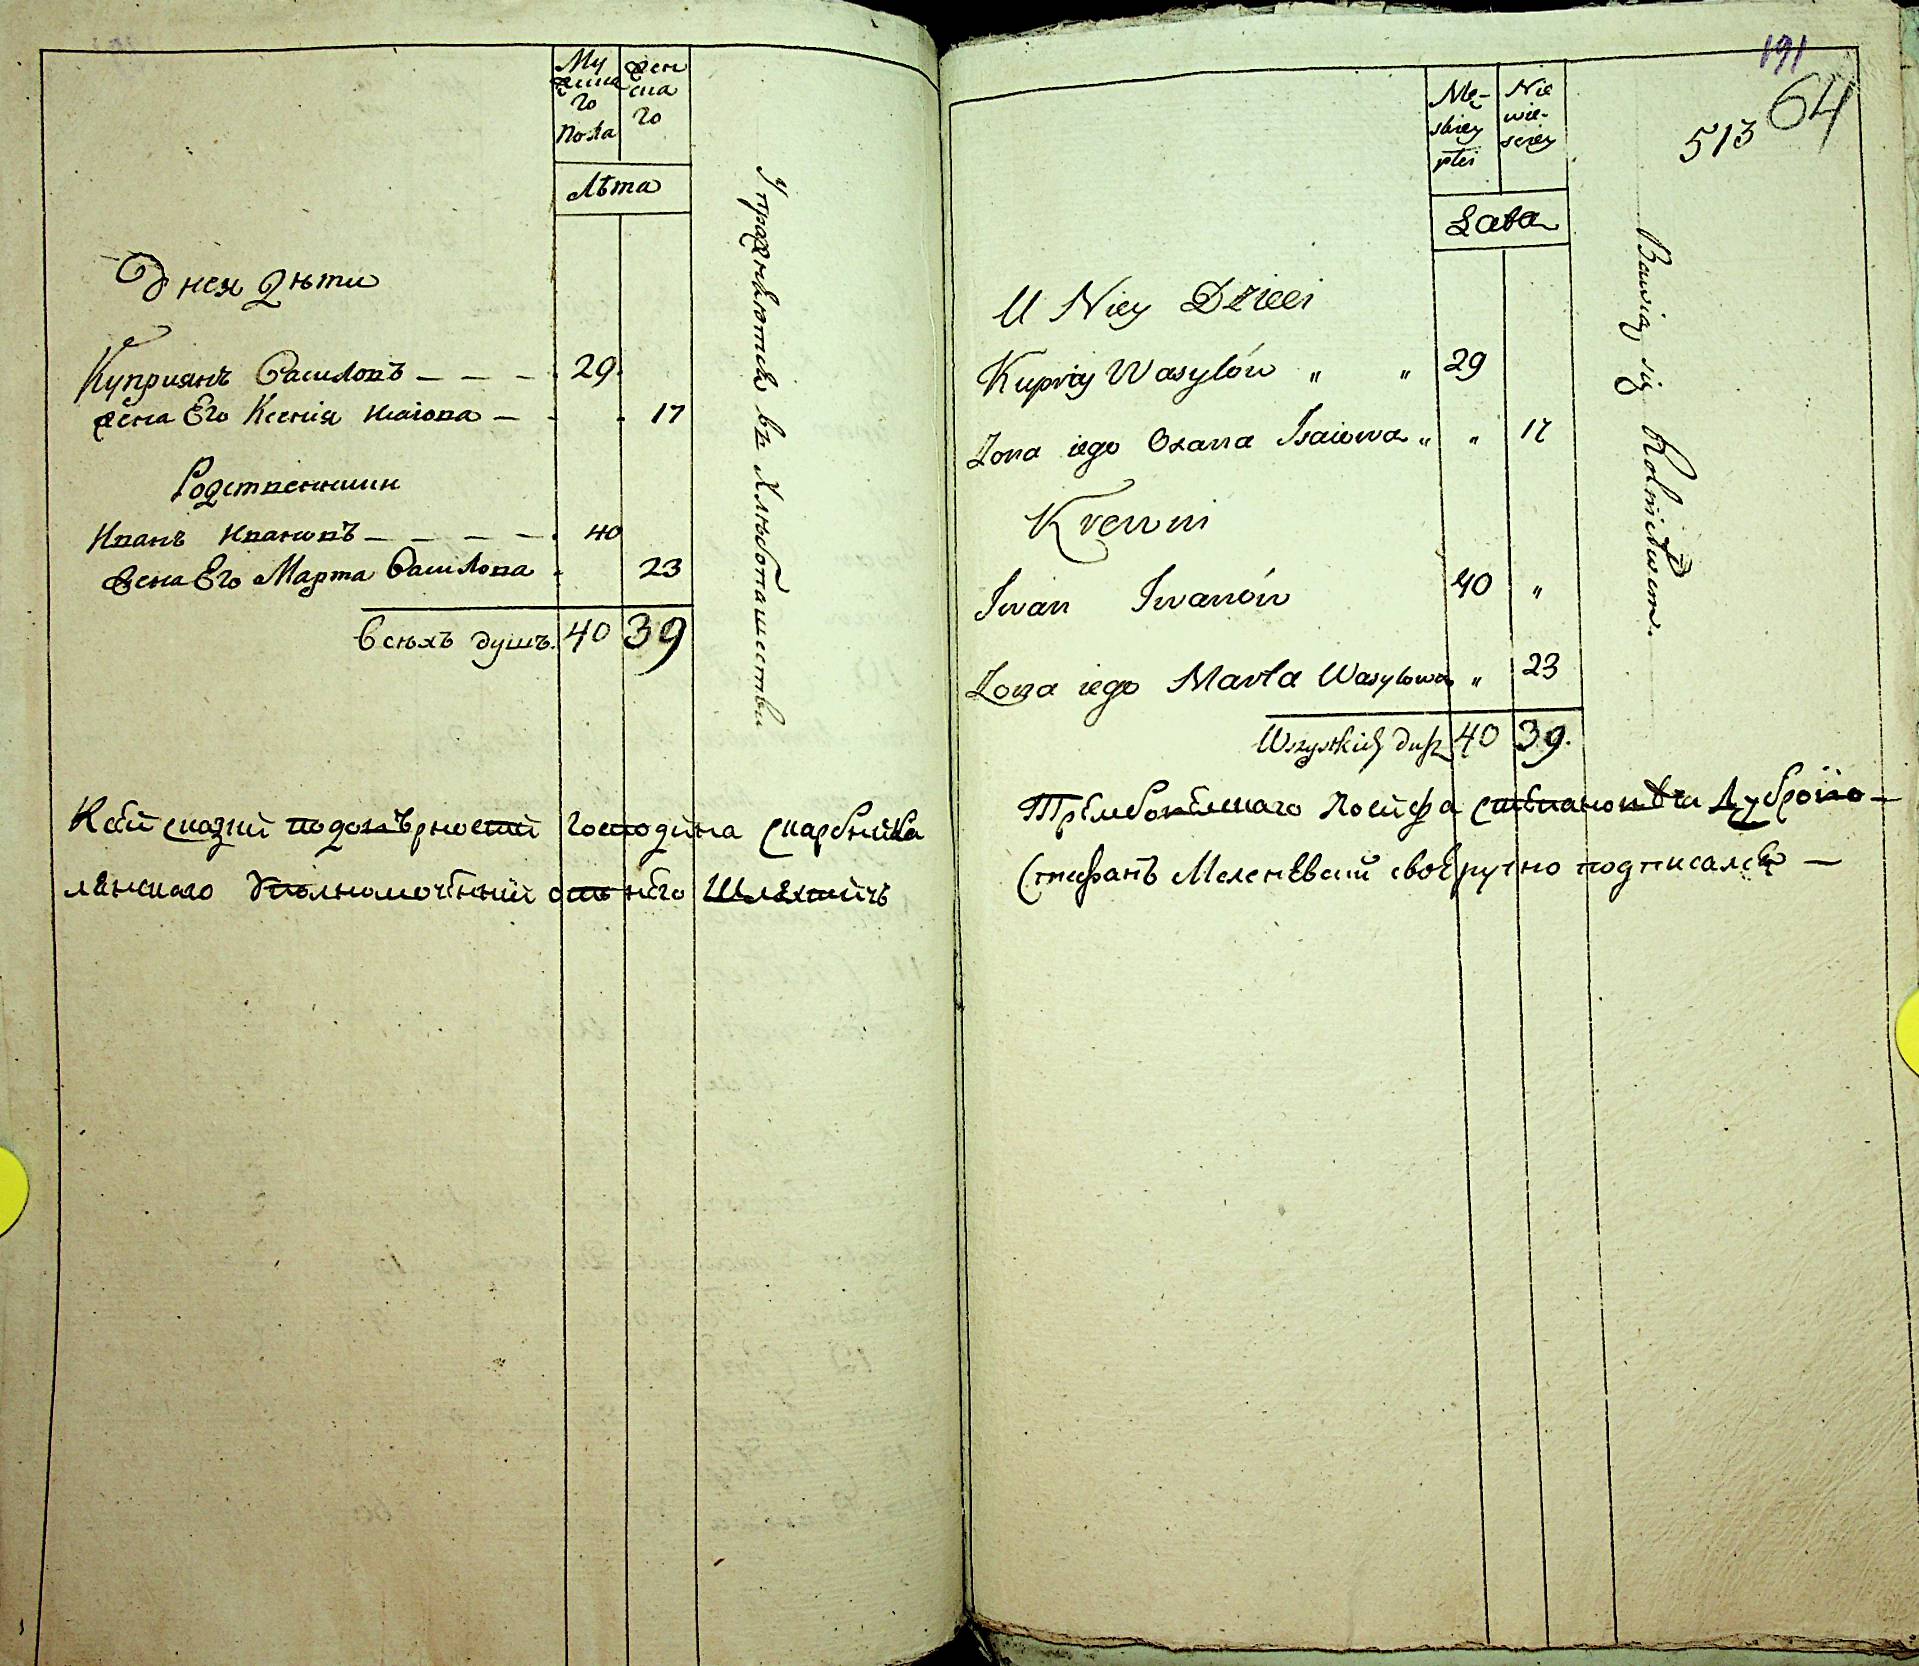 Му
жеска
го
пола
Жен
ска
го
Лѣта
У нея Дѣти
Куприянъ Василовъ – – – 29
Жена Его Ксенія Исаіова – 17
Родственники
Иванъ Ивановъ – – – – – 40
Жена Его Марта Василова 23
Всѣхъ душъ. 40 39
Упражняются въ Хлѣбопашестви
К сей сказки по доверности Господина Скарбника
лянскаго Уполномочѣнній отъ нѣго Шляхтичъ
191
64
513
Mę-
skiey
płci
Nie
wie-
sciey
Lata
U Niey Dzieci
Kupriy Wasylów „ „ 29
Zona iego Oxana Isaiowa „ „ 17
Krewni
Iwan Iwanów 40 „
Zona iego Marta Wasylowa „ 23
Wszystkich dusz 40 39.
Bawią się Rolnictwem.
Трѣмбовѣлскаго Іосифа Стѣпановѣча Дубропо–
Стефанъ Меленѣвский своѣручно подписалсь –